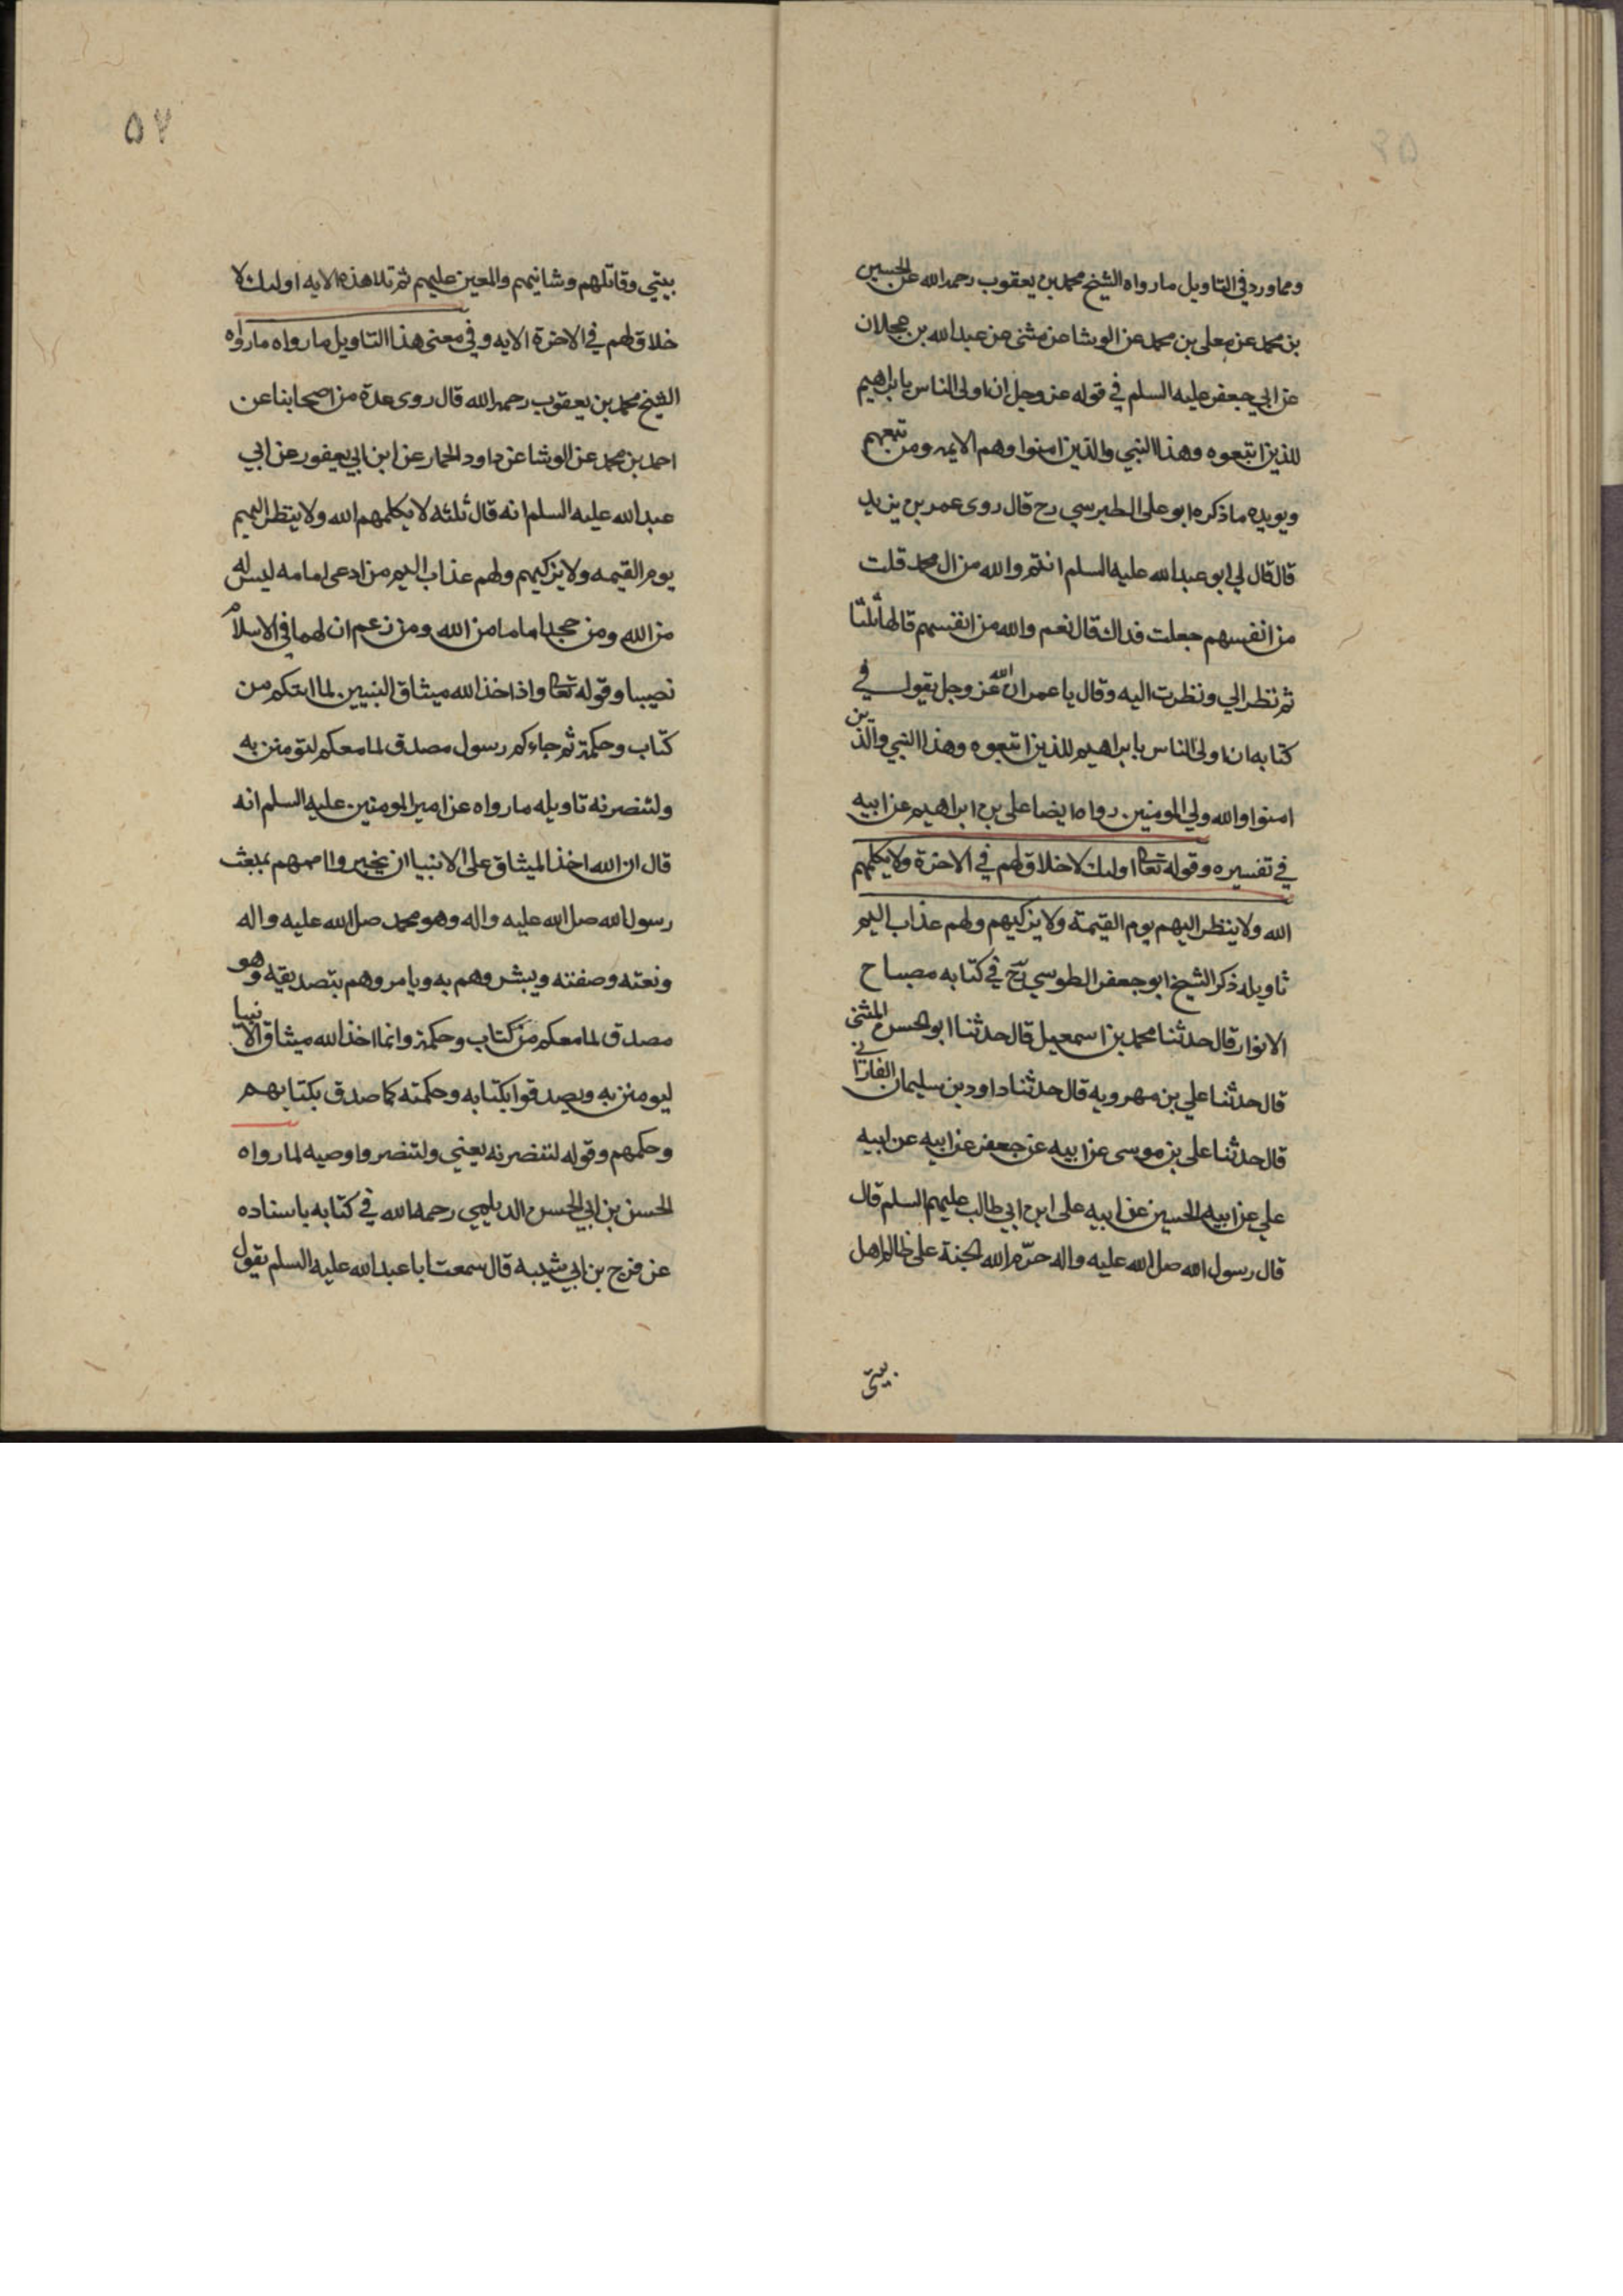 ومما ورد في التاويل ما رواه الشيخ محمد بن يعقوب رحمه الله عن الحسين
بن محمد عن معلى بن محمد عن الوشا عن مثنى عن عبد الله بن عجلان
عن ابي جعفر عليه السلم في قوله عز وجل ان اولى الناس بابراهيم
للذين اتبعوه وهذا النبي والذين امنوا وهم الايمه ومن تبعهم
ويويده ما ذكره ابو على الطبرسي رح قال روى عمر بن يزيد
قال قال لي ابو عبد الله عليه السلم انتم والله من ال محمد قلت
من انفسهم جعلت فداك قال نعم والله من انفسهم قالها ثلثا
ثم نظر الي ونظرت اليه وقال يا عمر ان الله عز وجل يقول في
كتابه ان اولى الناس بابراهيم للذين اتبعوه وهذا النبي والذين
امنوا والله ولي المومنين رواه ايضا على بن ابراهيم عن ابيه
في تفسيره وقوله تعالى اولىك لا خلاق لهم في الاخرة ولا يكلمهم
الله ولا ينظر اليهم يوم القيمة ولا يزكيهم ولهم عذاب اليم
تاويله ذكر الشيخ ابو جعفر الطوسي رح في كتابه مصباح
الانوار قال حدثنا محمد بن اسمعيل قال حدثنا ابو الحسن المثنى
قال حدثنا علي بن مهرويه قال حدثنا داود بن سليمان الغازي
قال حدثنا على بن موسى عن ابيه عن جعفر عن ابيه عن ابيه
علي عن ابيه الحسين عن ابيه على ابن ابي طالب عليهم السلم قال
قال رسول الله صلى الله عليه واله حرّم الله الجنة على ظالم اهل
بيتي
٥٧
بيتي وقاتلهم وشانيهم والمعين عليهم ثم تلا هذه الايه اولىك لا
خلاق لهم في الاخرة الايه وفي معنى هذا التاويل ما رواه ما رواه
الشيخ محمد بن يعقوب رحمه الله قال روى عدة من اصحابنا عن
احمد بن محمد عن الوشا عن داود الحمار عن ابن ابي يعفور عن ابي
عبد الله عليه السلم انه قال ثلثه لا يكلمهم الله ولا ينظر اليهم
يوم القيمه ولا يزكيهم ولهم عذاب اليم من ادعى امامه ليس له
من الله ومن جحد اماما من الله ومن زعم ان لهما في الاسلام
نصيبا وقوله تعالى واذ اخذ الله ميثاق النبيين لما اتيتكم من
كتاب وحكمة ثم جاءكم رسول مصدق لما معكم لتومنن به
ولتنصرنه تاويله ما رواه عن امير المومنين عليه السلم انه
قال ان الله اخذ الميثاق على الانبيا ان يخبروا اممهم بمبعث
رسول الله صلى الله عليه واله وهو محمد صلى الله عليه واله
ونعته وصفته ويبشروهم به ويامروهم بتصديقه وهو
مصدق لما معكم من كتاب وحكمة وانما اخذ الله ميثاق الانبيا
ليومنن به ويصدقوا بكتابه وحكمته كما صدق بكتابهم
وحكمهم وقوله لتنصرنه يعني ولتنصروا وصيه لما رواه
الحسن بن ابي الحسن الديلمي رحمه الله في كتابه باسناده
عن فرج بن ابي شيبه قال سمعت ابا عبد الله عليه السلم يقول